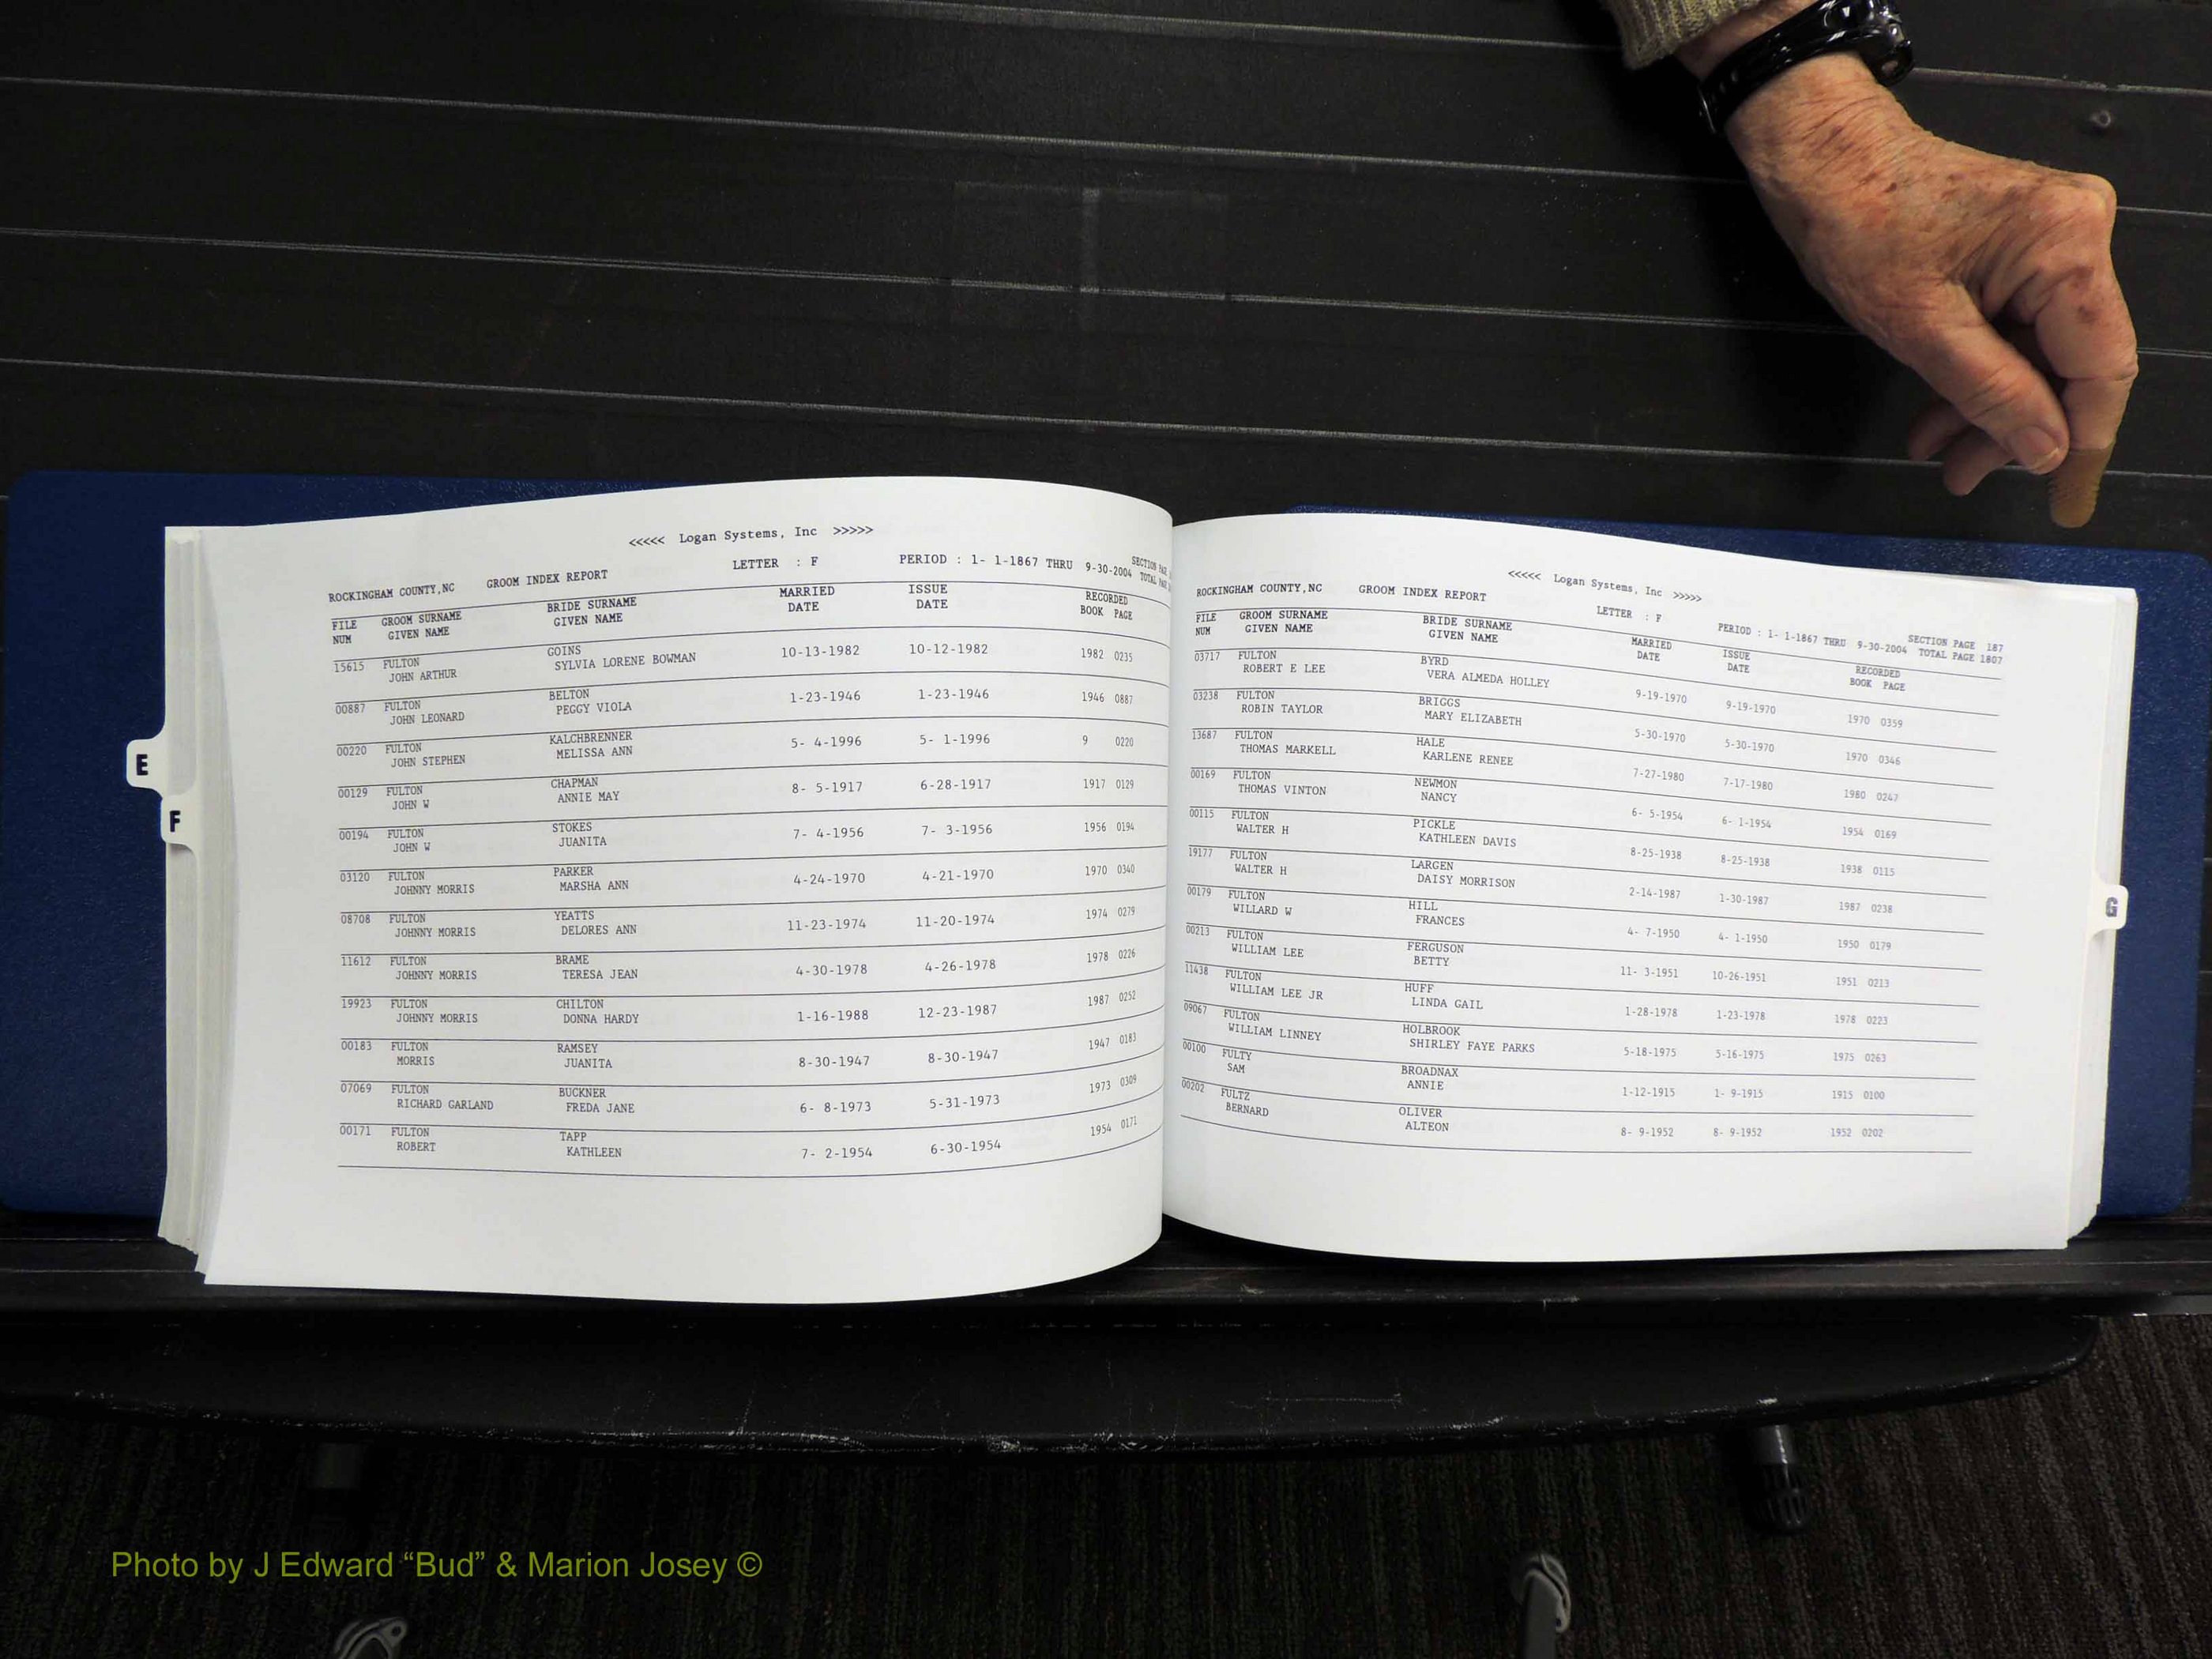 <<<<< Logan Systems, Inc >>>>>
ROCKINGHAM COUNTY,NC GROOM INDEX REPORT LETTER : F PERIOD : 1- 1-1867 THRU 9-30-2004 SECTION
TOTAL
FILE GROOM SURNAME BRIDE SURNAME MARRIED ISSUE RECORDED
NUM GIVEN NAME GIVEN NAME DATE DATE BOOK PAGE
15615 FULTON GOINS 10-13-1982 10-12-1982 1982 0235
JOHN ARTHUR SYLVIA LORENE BOWMAN
00887 FULTON BELTON 1-23-1946 1-23-1946 1946 0887
JOHN LEONARD PEGGY VIOLA
00220 FULTON KALCHBRENNER 5- 4-1996 5- 1-1996 9 0220
JOHN STEPHEN MELISSA ANN
00129 FULTON CHAPMAN 8- 5-1917 6-28-1917 1917 0129
JOHN W ANNIE MAY
00194 FULTON STOKES 7- 4-1956 7- 3-1956 1956 0194
JOHN W JUANITA
03120 FULTON PARKER 4-24-1970 4-21-1970 1970 0340
JOHNNY MORRIS MARSHA ANN
08708 FULTON YEATTS 11-23-1974 11-20-1974 1974 0279
JOHNNY MORRIS DELORES ANN
11612 FULTON BRAME 4-30-1978 4-26-1978 1978 0226
JOHNNY MORRIS TERESA JEAN
19923 FULTON CHILTON 1-16-1988 12-23-1987 1987 0252
JOHNNY MORRIS DONNA HARDY
00183 FULTON RAMSEY 8-30-1947 8-30-1947 1947 0183
MORRIS JUANITA
07069 FULTON BUCKNER 6- 8-1973 5-31-1973 1973 0309
RICHARD GARLAND FREDA JANE
00171 FULTON TAPP 7- 2-1954 6-30-1954 1954 0171
ROBERT KATHLEEN
E
F
<<<<< Logan Systems, Inc >>>>>
ROCKINGHAM COUNTY,NC GROOM INDEX REPORT LETTER : F PERIOD : 1- 1-1867 THRU 9-30-2004 SECTION PAGE 187
TOTAL PAGE 1807
FILE GROOM SURNAME BRIDE SURNAME MARRIED ISSUE RECORDED
NUM GIVEN NAME GIVEN NAME DATE DATE BOOK PAGE
03717 FULTON BYRD 9-19-1970 9-19-1970 1970 0359
ROBERT E LEE VERA ALMEDA HOLLEY
03238 FULTON BRIGGS 5-30-1970 5-30-1970 1970 0346
ROBIN TAYLOR MARY ELIZABETH
13687 FULTON HALE 7-27-1980 7-17-1980 1980 0247
THOMAS MARKELL KARLENE RENEE
00169 FULTON NEWMON 6- 5-1954 6- 1-1954 1954 0169
THOMAS VINTON NANCY
00115 FULTON PICKLE 8-25-1938 8-25-1938 1938 0115
WALTER H KATHLEEN DAVIS
19177 FULTON LARGEN 2-14-1987 1-30-1987 1987 0238
WALTER H DAISY MORRISON
00179 FULTON HILL 4- 7-1950 4- 1-1950 1950 0179
WILLARD W FRANCES
00213 FULTON FERGUSON 11- 3-1951 10-26-1951 1951 0213
WILLIAM LEE BETTY
11438 FULTON HUFF 1-28-1978 1-23-1978 1978 0223
WILLIAM LEE JR LINDA GAIL
09067 FULTON HOLBROOK 5-18-1975 5-16-1975 1975 0263
WILLIAM LINNEY SHIRLEY FAYE PARKS
00100 FULTY BROADNAX 1-12-1915 1- 9-1915 1915 0100
SAM ANNIE
00202 FULTZ OLIVER 8- 9-1952 8- 9-1952 1952 0202
BERNARD ALTEON
G
Photo by J Edward “Bud” & Marion Josey ©